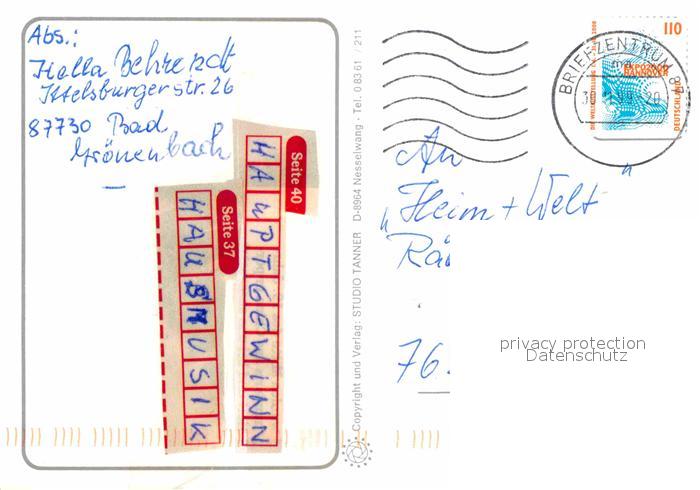 Abs.:
Hella Behrendt
Ittelsburger str. 26
87730 Bad
Grönenbach
Seite 40
HAUPTGEWINN
Seite 37
HAUSMUSIK
Copyright und Verlag: STUDIO TANNER D-8964 Nesselwang · Tel. 0 83 61 / 211
BRIEFZENTRUM 87
110
EXPO2000
HANNOVER
DEUTSCHLAND
An
"Heim + Welt"
76.
privacy protection
Datenschutz